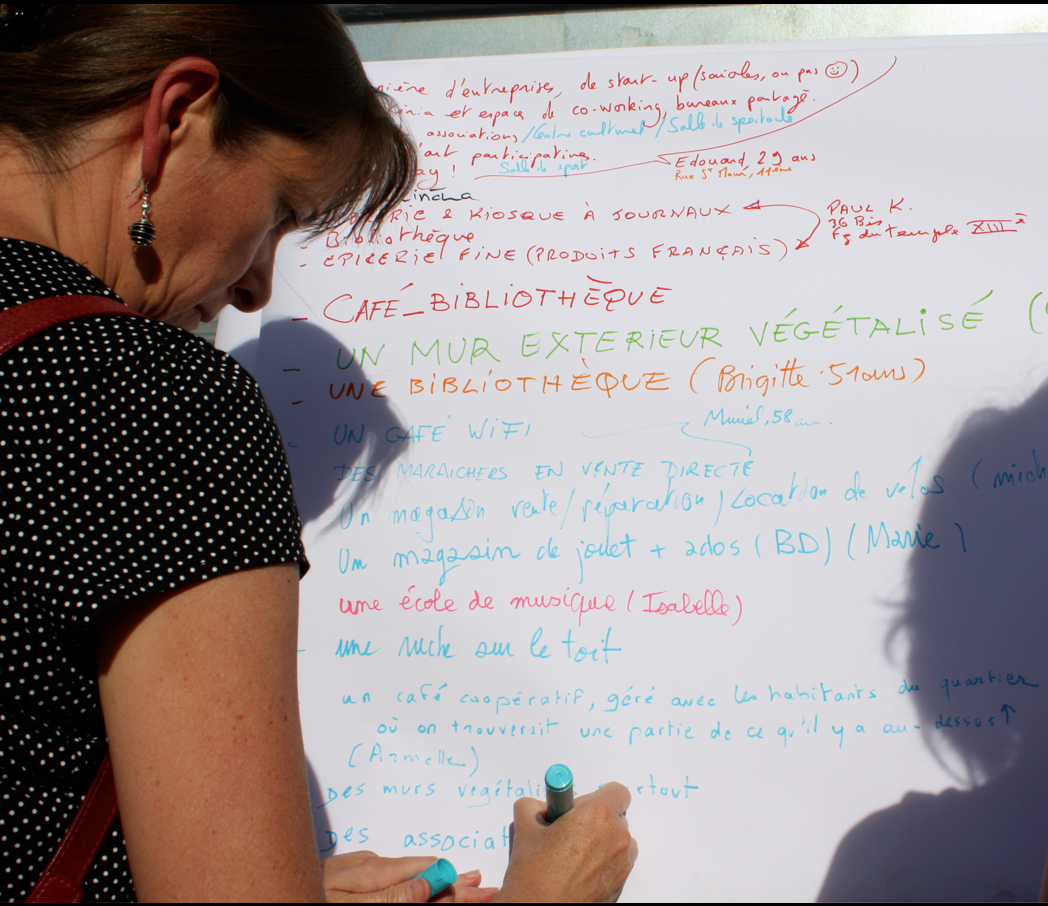 d'entreprises, de start-up (sociales, ou pas ☺)
et espace de co-working, bureaux partagé.
associations / Centre culturel / Salle de spectacle
participative.
Salle de sport
Edouard, 29 ans
Rue St Maur, 11ème
& KIOSQUE À JOURNAUX
PAUL K.
36 Bis
Fg du temple XIIIe
- Bibliothèque
- EPICERIE FINE (PRODUITS FRANÇAIS)
- CAFÉ_BIBLIOTHÈQUE
- UN MUR EXTERIEUR VÉGÉTALISÉ (
- UNE BIBLIOTHÈQUE (Brigitte 51ans)
- UN CAFÉ WIFI
Muriel, 58 an
DES MARAICHERS EN VENTE DIRECTE
Un magasin vente / réparation / Location de vélos (mich
Um magasin de jouet + ados (BD) (Marie)
une école de musique (Isabelle)
- une ruche sur le toit
- un café coopératif, géré avec les habitants du quartier
où on trouverait une partie de ce qu'il y a au-dessus ↑
(Armelle)
Des murs végétali rtout
Des associat